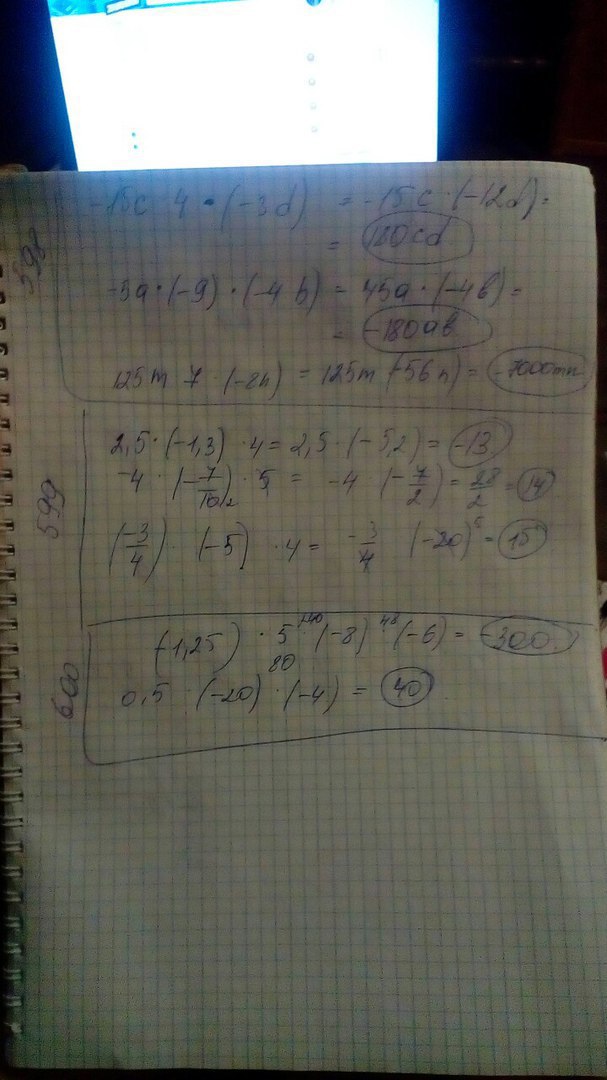 598
-15c 4 · (-3d) = -15c · (-12d) =
= 180cd
-5a · (-9) · (-4b) = 45a · (-4b) =
= -180ab
125m 7 · (-8n) = 125m (-56n) = -7000mn
599
2,5 · (-1,3) · 4 = 2,5 · (-5,2) = -13
-4 · (-7/10 2) · 5 = -4 · (-7/2) = 28/2 = 14
(-3/4) · (-5) · 4 = -3/4 (-20)⁵ = 15
600
(-1,25) · 5 · (-8) · (-6) = -300
80
0,5 · (-20) · (-4) = 40